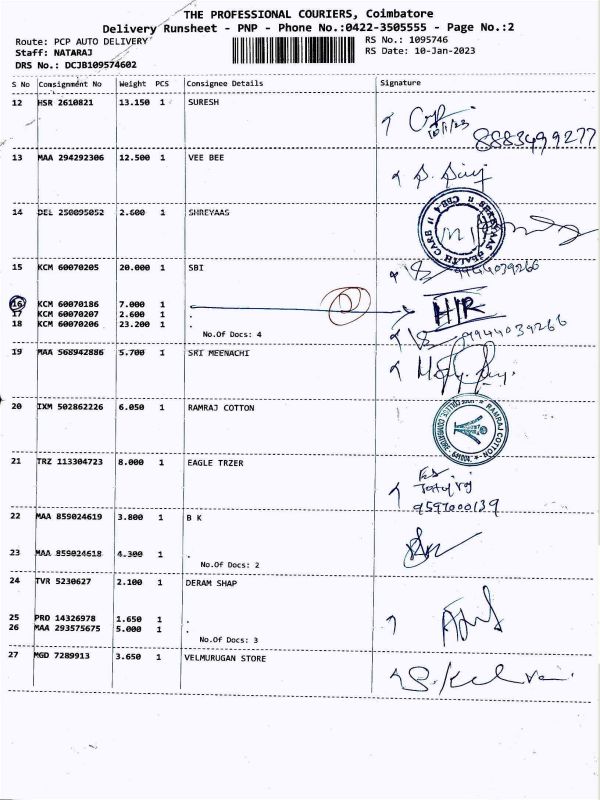 THE PROFESSIONAL COURIERS, Coimbatore
Delivery Runsheet - PNP - Phone No.:0422-3505555 - Page No.:2
Route: PCP AUTO DELIVERY
RS No.: 1095746
Staff: NATARAJ
RS Date: 10-Jan-2023
DRS No.: DCJB109574602
S No Consignment No Weight PCS Consignee Details Signature
12 HSR 2610821 13.150 1 SURESH
10/1/23
8883499277
13 MAA 294292306 12.500 1 VEE BEE
14 DEL 250095052 2.600 1 SHREYAAS
15 KCM 60070205 20.000 1 SBI
9944039266
16 KCM 60070186 7.000 1 .
H/R
17 KCM 60070207 2.600 1 .
18 KCM 60070206 23.200 1 .
9944039266
No.Of Docs: 4
19 MAA 568942886 5.700 1 SRI MEENACHI
20 IXM 502862226 6.050 1 RAMRAJ COTTON
RAMRAJ COTTON
21 TRZ 113304723 8.000 1 EAGLE TRZER
9597000139
22 MAA 859024619 3.800 1 B K
23 MAA 859024618 4.300 1 .
No.Of Docs: 2
24 TVR 5230627 2.100 1 DERAM SHAP
25 PRO 14326978 1.650 1 .
26 MAA 293575675 5.000 1 .
No.Of Docs: 3
27 MGD 7289913 3.650 1 VELMURUGAN STORE